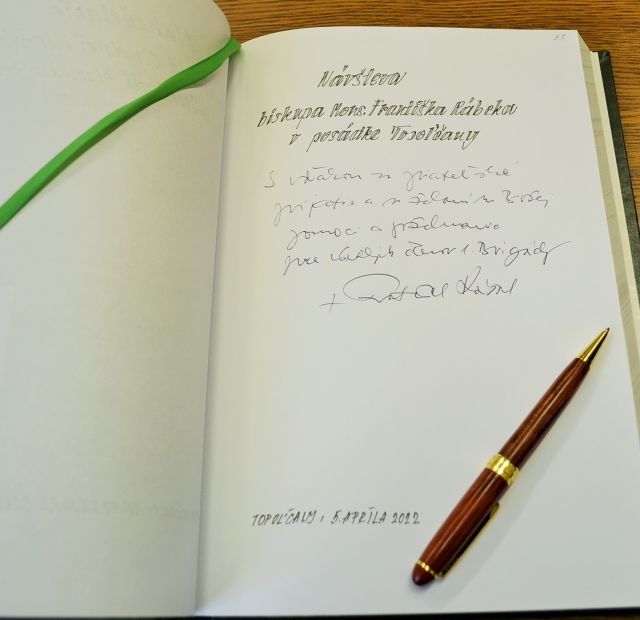 Návšteva
biskupa Mons. Františka Rábeka
v posádke Topoľčany
S vďakou za priateľské
prijatie a so želaním Božej
pomoci a požehnania
pre všetkých členov 1. Brigády
+ František Rábek
TOPOĽČANY, 5. APRÍLA 2022